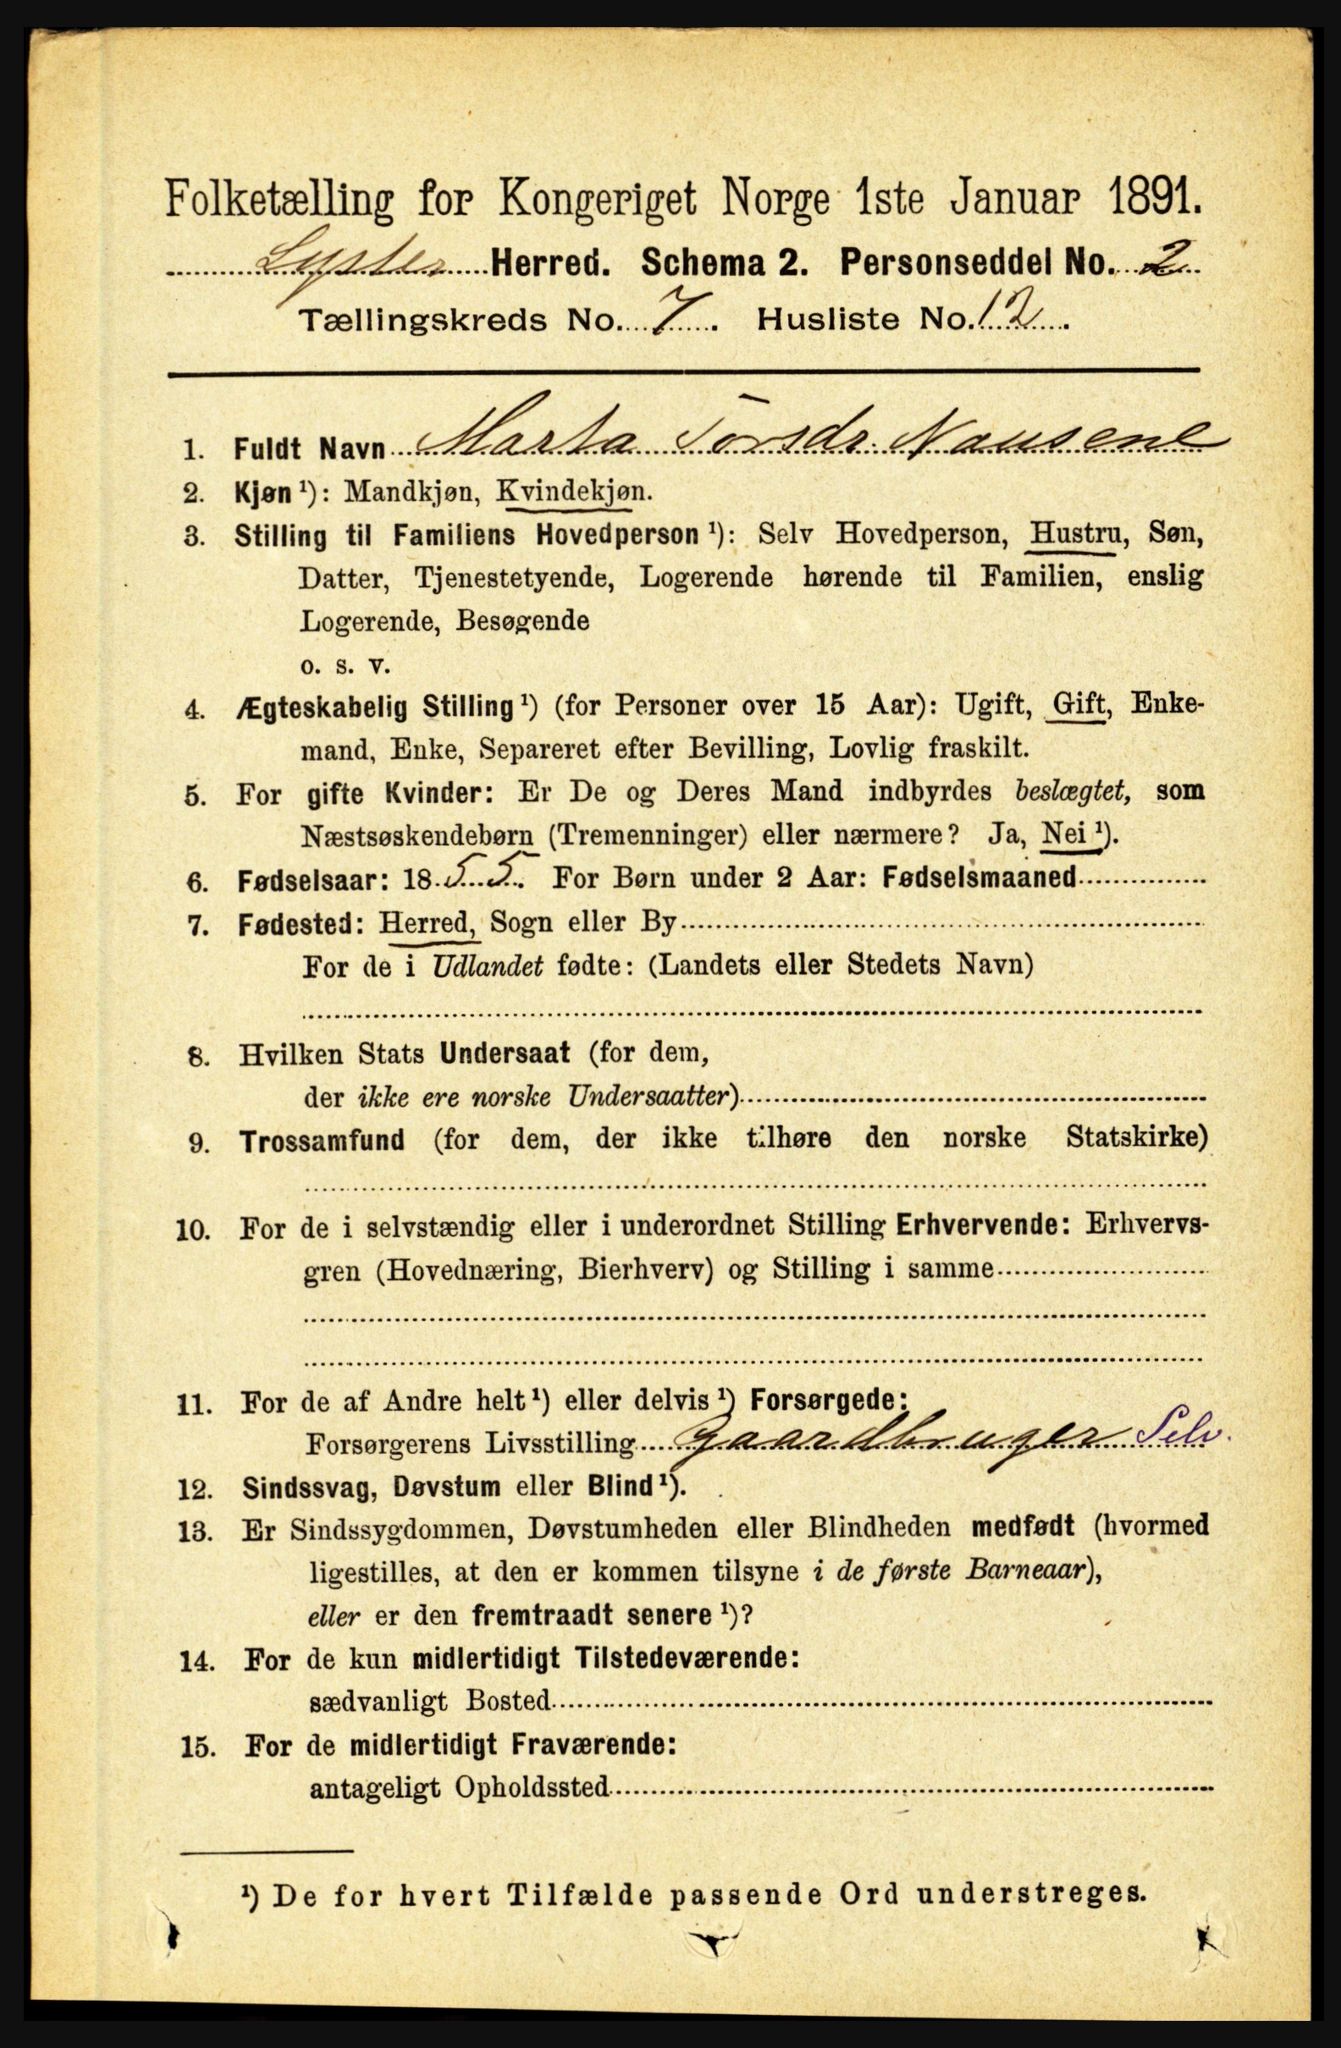 Folketælling for Kongeriget Norge 1ste Januar 1891.
Lyster Herred. Schema 2. Personseddel No. 2
Tællingskreds No. 7. Husliste No. 12.
1. Fuldt Navn Marta Torsdr. Nausene
2. Kjøn ¹): Mandkjøn, Kvindekjøn.
3. Stilling til Familiens Hovedperson ¹): Selv Hovedperson, Hustru, Søn,
Datter, Tjenestetyende, Logerende hørende til Familien, enslig
Logerende, Besøgende
o. s. v.
4. Ægteskabelig Stilling ¹) (for Personer over 15 Aar): Ugift, Gift, Enke-
mand, Enke, Separeret efter Bevilling, Lovlig fraskilt.
5. For gifte Kvinder: Er De og Deres Mand indbyrdes beslægtet, som
Næstsøskendebørn (Tremenninger) eller nærmere? Ja, Nei ¹).
6. Fødselsaar: 1855. For Børn under 2 Aar: Fødselsmaaned
7. Fødested: Herred, Sogn eller By
For de i Udlandet fødte: (Landets eller Stedets Navn)
8. Hvilken Stats Undersaat (for dem,
der ikke ere norske Undersaatter)
9. Trossamfund (for dem, der ikke tilhøre den norske Statskirke)
10. For de i selvstændig eller i underordnet Stilling Erhvervende: Erhvervs-
gren (Hovednæring, Bierhverv) og Stilling i samme
11. For de af Andre helt ¹) eller delvis ¹) Forsørgede:
Forsørgerens Livsstilling Gaardbruger Selv.
12. Sindssvag, Døvstum eller Blind ¹).
13. Er Sindssygdommen, Døvstumheden eller Blindheden medfødt (hvormed
ligestilles, at den er kommen tilsyne i de første Barneaar),
eller er den fremtraadt senere ¹)?
14. For de kun midlertidigt Tilstedeværende:
sædvanligt Bosted
15. For de midlertidigt Fraværende:
antageligt Opholdssted
¹) De for hvert Tilfælde passende Ord understreges.